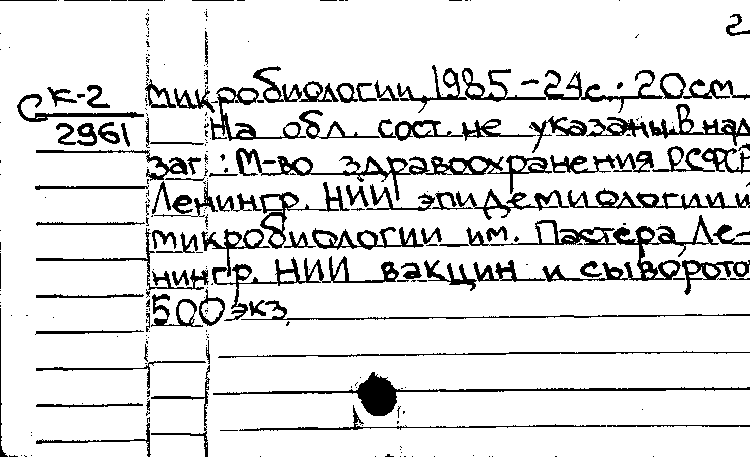 2
СК-2
2961
микробиологии, 1985.-24с.; 20см
На обл. сост. не указаны. В над
заг: М-во здравоохранения РСФСР
Ленингр. НИИ эпидемиологии и
микробиологии им. Пастера, Ле-
нингр. НИИ вакцин и сыворото
500 экз.